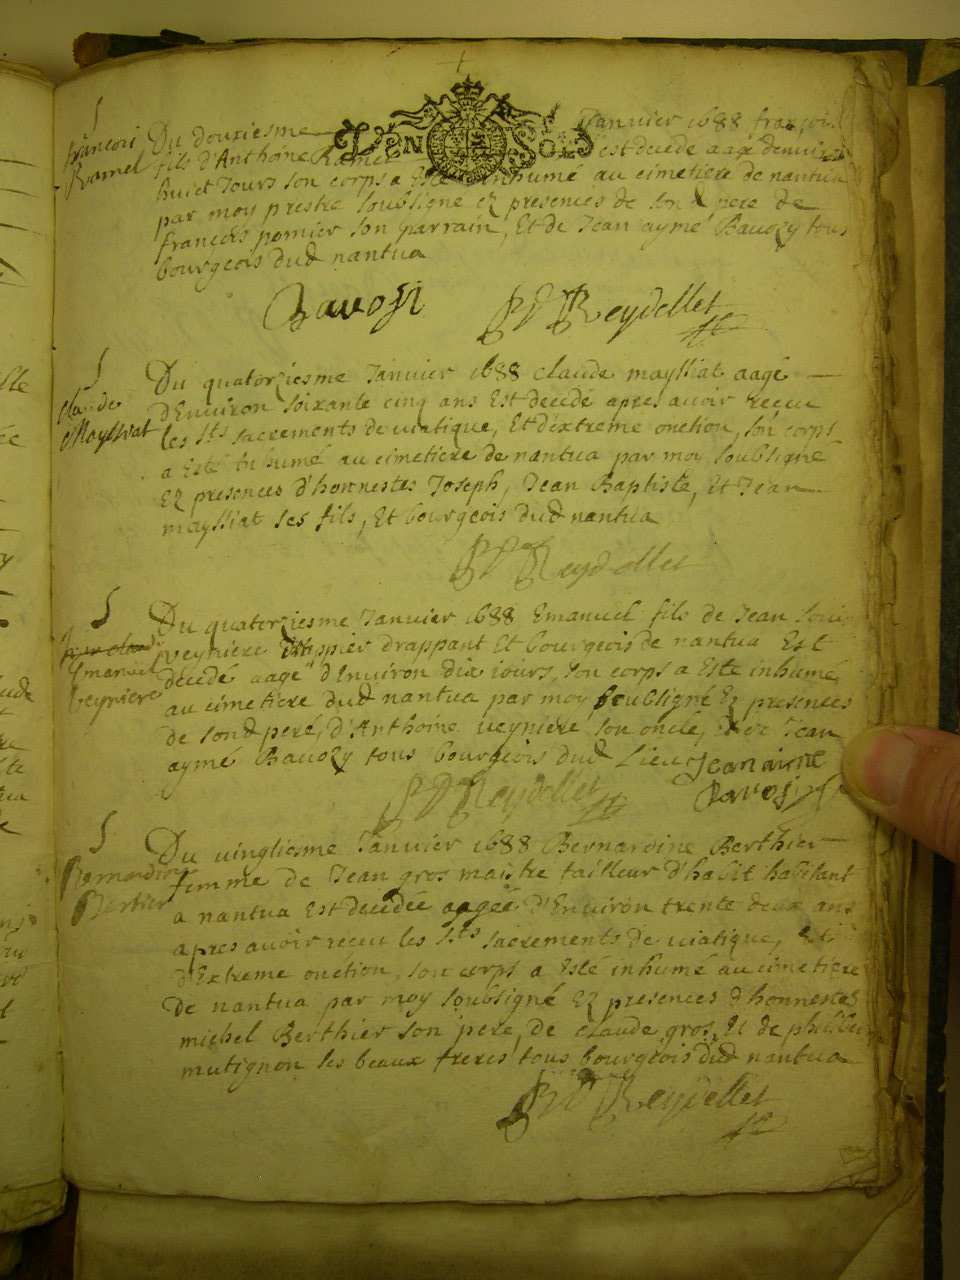 françois
Ramel
Du douziesme Janvier 1688 françois
fils d'Anthoine est decedé aagé denviron
huict Jours son corps a Esté inhumé au cimetiere de nantua
par moy prestre soubsigné Ez presences de son d pere de
françois pomier son parrain, Et de Jean aymé Bavozy tous
bourgeois dud nantua
Bavosi PP Reydellet
Claude
Mayssiat
Du quatorziesme Janvier 1688 Claude mayssiat aagé
d'Environ soixante cinq ans Est decedé apres avoir receu
les Sts sacrements de viatique, Et d'extreme onction, son corps
a Esté inhumé au cimetiere de nantua par moy soubsigné
Ez presences d'honnestes Joseph, Jean Baptiste, Et Jean
mayssiat ses fils, Et bourgeois dud nantua
PP Reydellet
Emanuel
veyniere
Du quatorziesme Janvier 1688 Emanuel fils de Jean
veyniere drappant Et bourgeois de nantua Est
décédé aagé d'Environ dix jours, son corps a Esté inhumé
au cimetiere dud nantua par moy soubsigné Ez presences
de sond pere, d'Anthoine veyniere, son oncle, Et de Jean
aymé Bavozy tous bourgeois dud Lieu Jean aime
PP Reydellet Bavosi
Bernardine
Bertier
Du vingtiesme Janvier 1688 Bernardine Berthier
femme de Jean gros maistre tailleur d'habit habitant
a nantua Est decedée aagée d'Environ trente deux ans
apres avoir receu les Sts sacrements de viatique, Et
d'Extreme onction, son corps a Esté inhumé au cimetiere
de nantua par moy soubsigné Ez presences d'honnestes
michel Berthier son pere, de claude gros, Et de philibert
mutignon ses beaux freres, tous bourgeois dud nantua
PP Reydellet